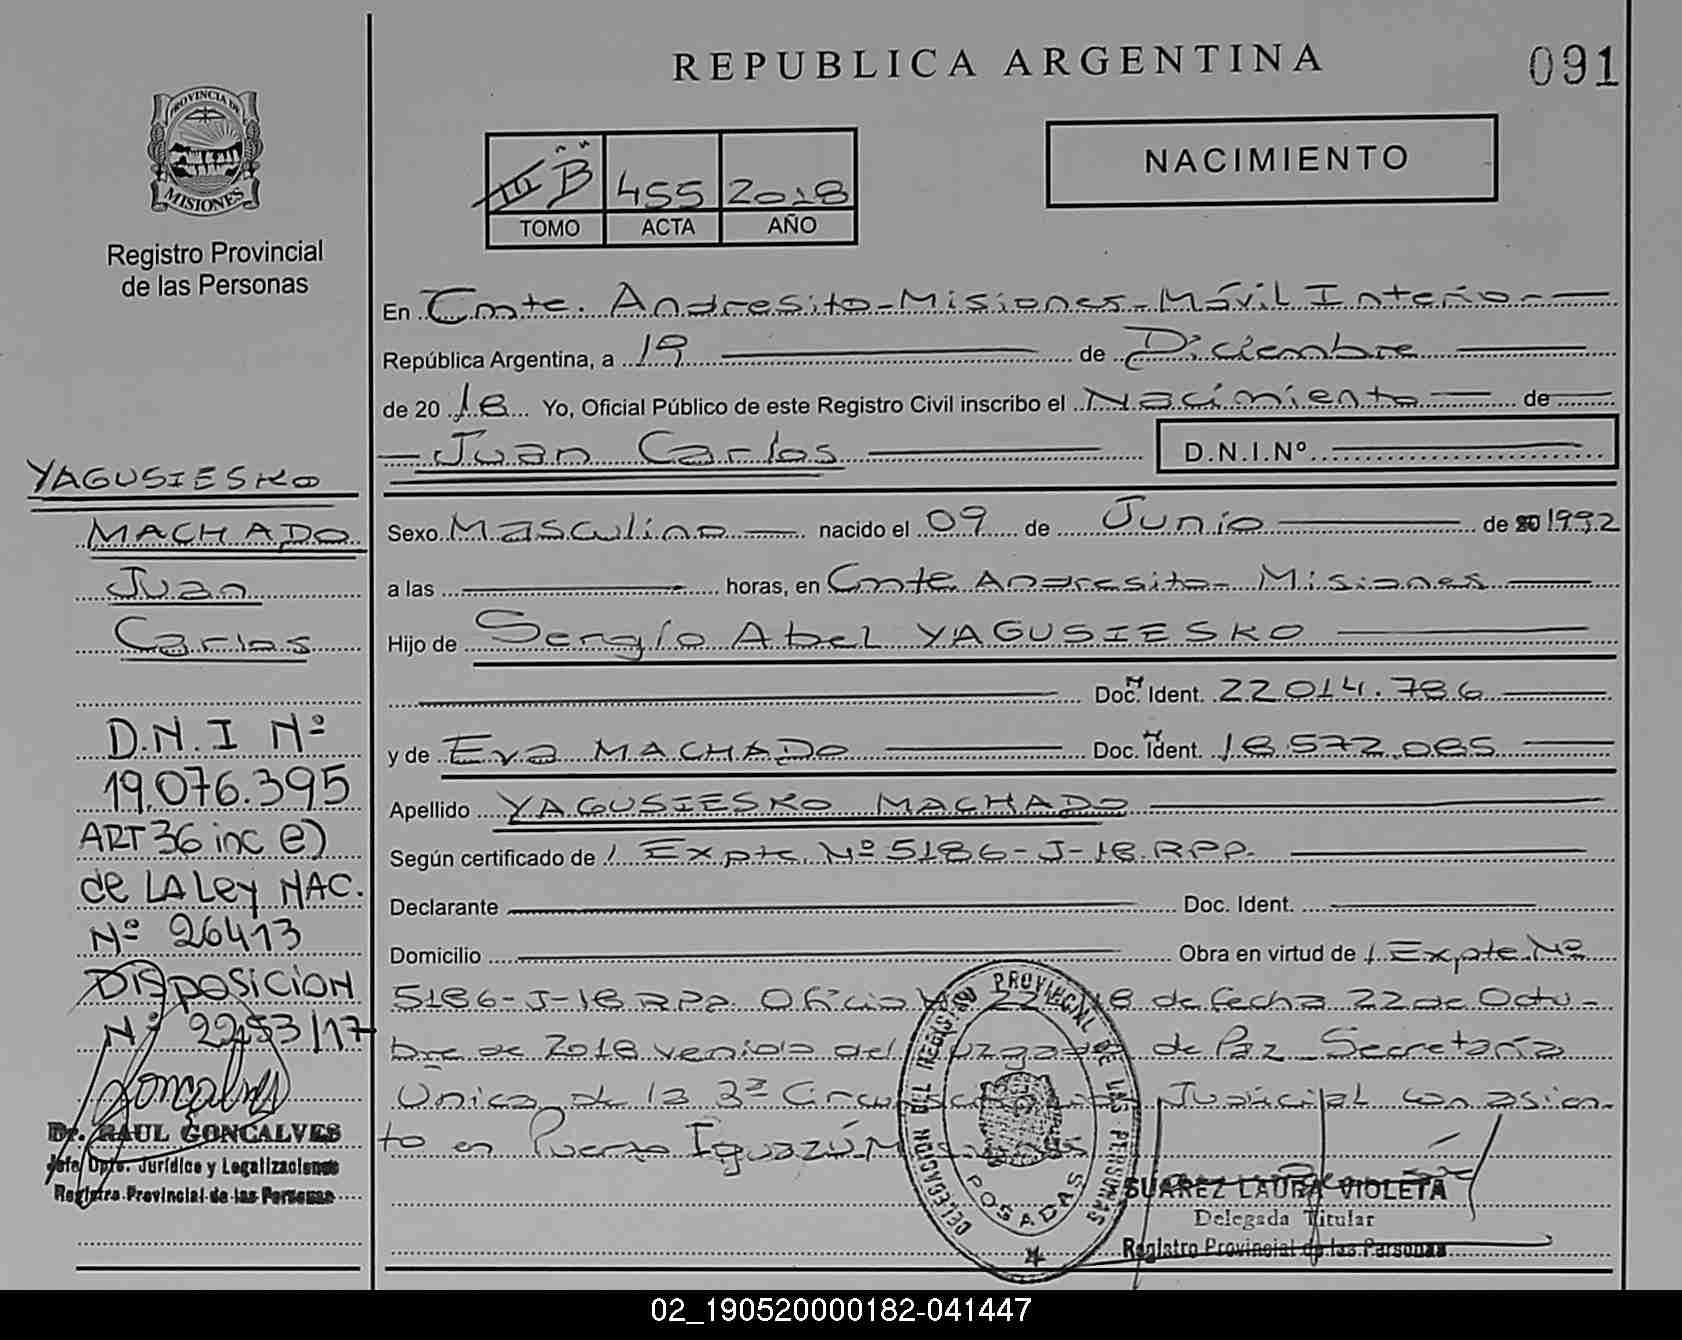 REPUBLICA ARGENTINA
091
PROVINCIA DE
MISIONES
Registro Provincial
de las Personas
III B 455 2018
TOMO ACTA AÑO
NACIMIENTO
En Cmte. Andresito - Misiones - Móvil Interio -
República Argentina, a 19 de Diciembre
de 20 18 Yo, Oficial Público de este Registro Civil inscribo el Nacimiento de
Juan Carlos D.N.I.Nº
Sexo Masculino nacido el 09 de Junio de 1992
a las horas, en Cmte Andresito - Misiones
Hijo de Sergio Abel YAGUSIESKO
Doc. Ident. 22014.786
y de Eva MACHADO Doc. Ident. 18.572.085
Apellido YAGUSIESKO MACHADO
Según certificado de / Expte. Nº 5186-J-18.RPP.
Declarante Doc. Ident.
Domicilio Obra en virtud de / Expte Nº
5186-J-18 RPP. Oficio de fecha 22 de Octu-
bre de 2018 venido del Juzgado de Paz Secretaría
Única de la 3ª Judicial con asien-
to en Puerto Iguazú
YAGUSIESKO
MACHADO
Juan
Carlos
D.N.I Nº
19.076.395
ART 36 inc e)
de LA Ley NAC.
Nº 26413
DISPOSICION
Nº 2253/17
Goncalves
Dr. RAUL GONCALVES
Jefe Dpto. Jurídico y Legalizaciones
Registro Provincial de las Personas
DELEGACION DEL REGISTRO PROVINCIAL DE LAS PERSONAS
POSADAS
SUAREZ LAURA VIOLETA
Delegada Titular
Registro Provincial de las Personas
02_190520000182-041447